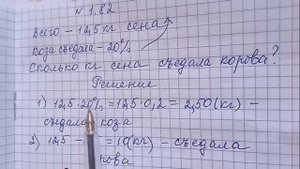 N 1.82
Всего – 12,5 кг сена
коза съедала – 20%
Сколько кг сена съедала корова?
Решение
1) 12,5 · 20% = 12,5 · 0,2 = 2,50 (кг) –
съедала коза
2) 12,5 – = 10 (кг) – съедала
рова